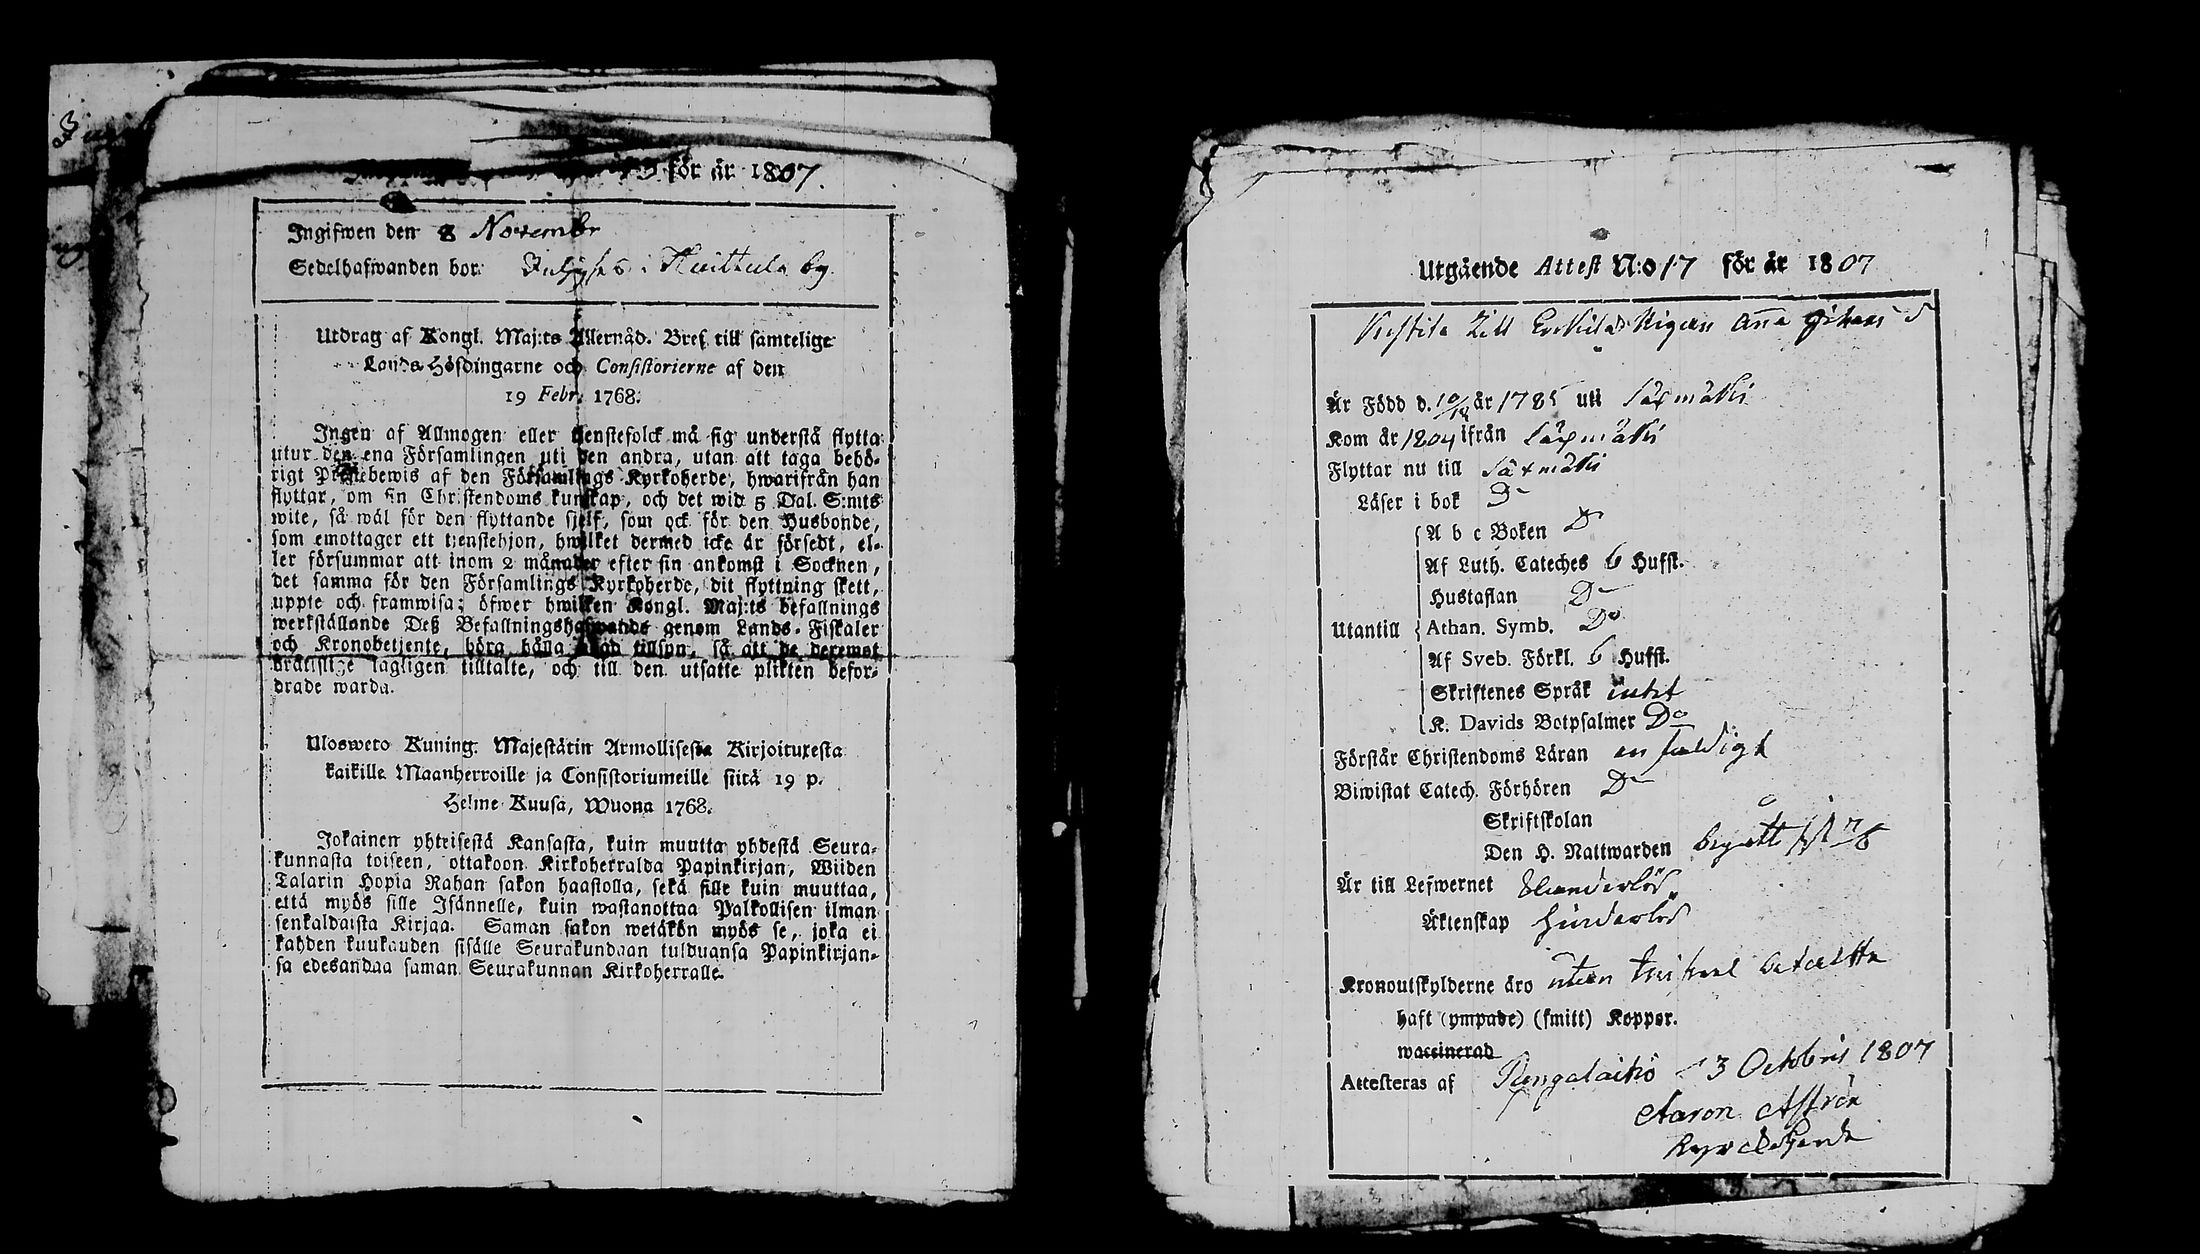 för år 1807.
Ingifwen den 8 Novembr
Sedelhafwanden bor i Huittula by.
Utdrag af Kongl. Maj:ts Allernåd. Bref till samtelige
Lands-Höfdingarne och Consistorierne af den
19 Febr. 1768.
Ingen af Allmogen eller tjenstefolck må sig understå flytta
utur den ena Församlingen uti den andra, utan att taga behö-
rigt Prästebewis af den Församlings Kyrkoherde, hwarifrån han
flyttar, om sin Christendoms kunskap, och det wid 5 Dal. S:mts
wite, så wäl för den flyttande sjelf, som ock för den Husbonde,
som emottager ett tjenstehjon, hwilket dermed icke är försedt, el-
ler försummar att inom 2 månader efter sin ankomst i Socknen,
det samma för den Församlings Kyrkoherde, dit flyttning skett,
uppte och framwisa; öfwer hwilken Kongl. Maj:ts befallnings
werkställande Deß Befallningshafwande genom Lands-Fiskaler
och Kronobetjente, böra hålla tillsyn, så att de deremot
bråtslige lagligen tilltalte, och till den utsatte plikten befor-
drade warda.
Ulosweto Kuning. Majestätin Armollisesta Kirjoituxesta
kaikille Maanherroille ja Consistoriumeille siitä 19 p.
Helme-Kuusa, Wuona 1768.
Jokainen yhteisestä Kansasta, kuin muutta yhdestä Seura-
kunnasta toiseen, ottakoon Kirkoherralda Papinkirjan, Wiiden
Talarin Hopia Rahan sakon haastolla, sekä sille kuin muuttaa,
että myös sille Isännelle, kuin wastanottaa Palkollisen ilman
senkaldaista Kirjaa. Saman sakon wetäkön myös se, joka ei
kahden kuukauden sisälle Seurakundaan tulduansa Papinkirjan-
sa edesandaa saman Seurakunnan Kirkoherralle.
Utgående Attest N:o 17 för år 1807
till Pigan Anna
Är Född d. 10/12 år 1785 uti Säxmäki
Kom år 1804 ifrån Säxmäki
Flyttar nu till Säxmäki
Läser i bok
A b c Boken
Af Luth. Cateches 6 Hufst.
Hustaflan
Utantill Athan. Symb. Do
Af Sveb. Förkl. 6 Hufst.
Skriftenes Språk intet
K. Davids Botpsalmer Do
Förstår Christendoms Läran enfaldigt
Biwistat Catech. Förhören
Skriftskolan
Den H. Nattwarden begått sist
Är till Lefwernet
Äktenskap hinderlös
Kronoutskylderne äro utan twifwel betalta
haft (ympade) (smitt) Koppor.
waccinerad
Attesteras af Pungalaitio 13 Octobris 1807
Aaron Aström
Kyrckoherde